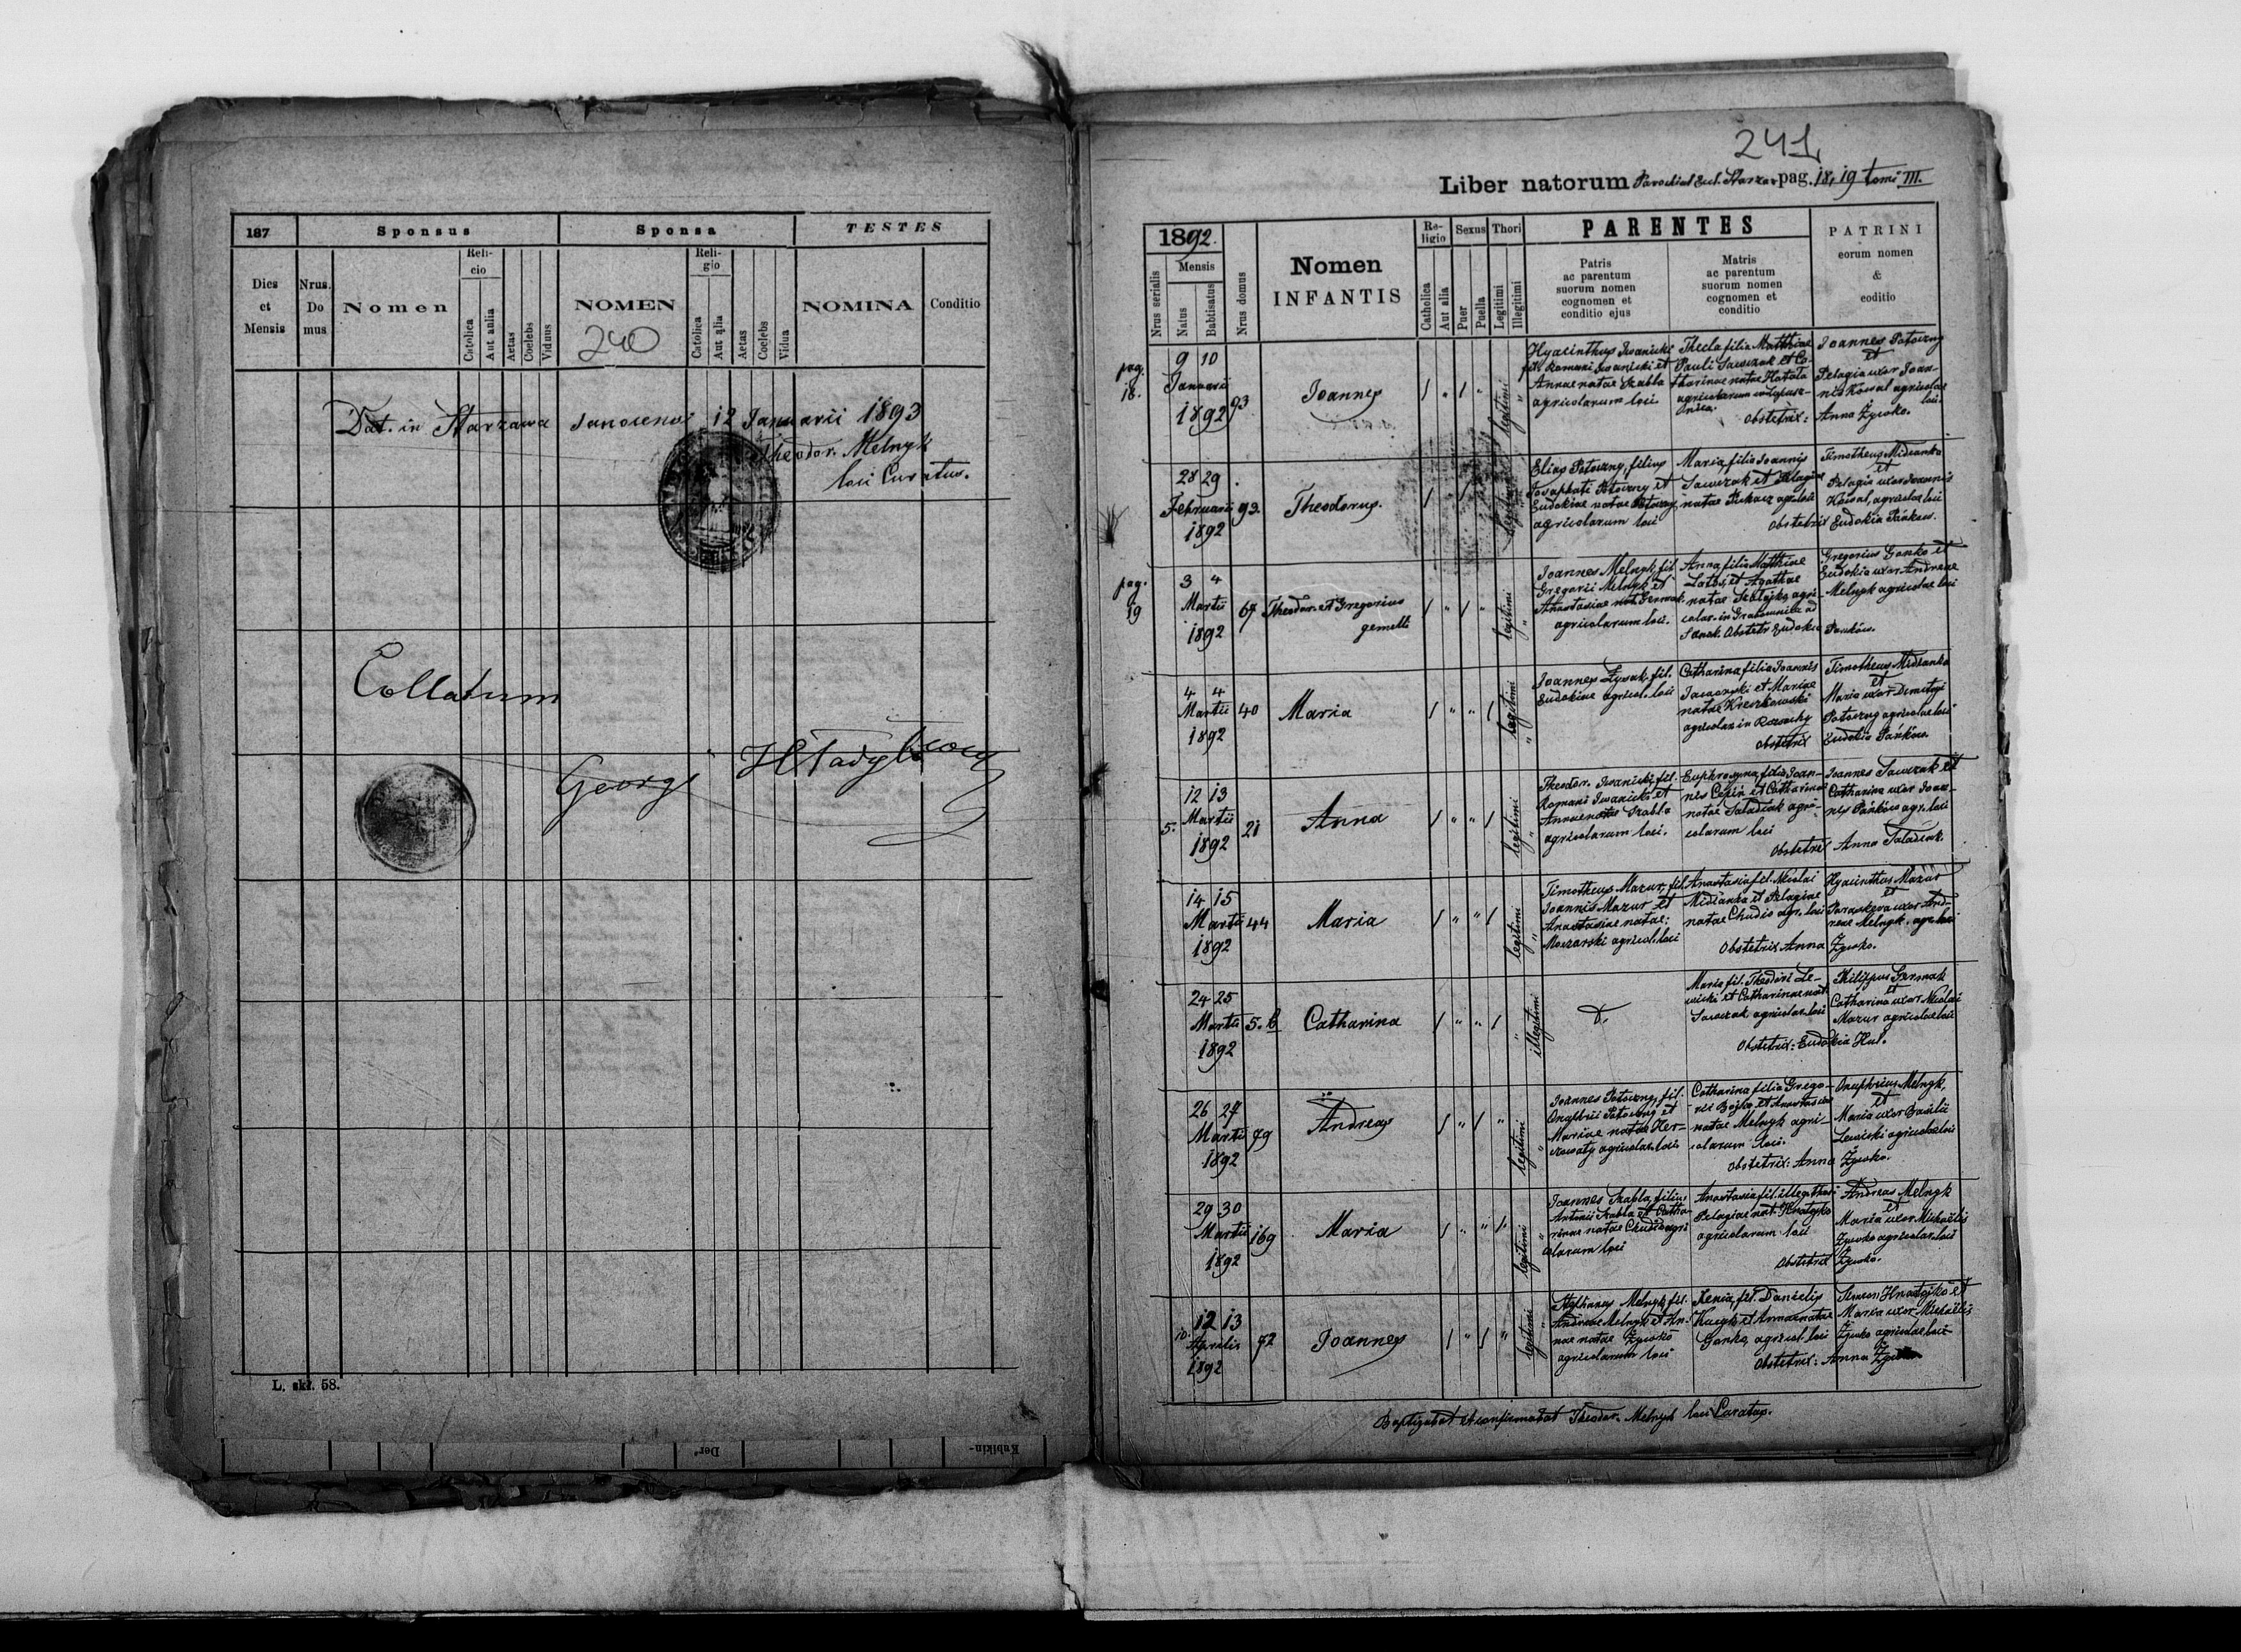 187 Sponsus Sponsa TESTES
Dies et Mensis
Nrus. Do mus
Nomen
Reli-cio
Catolica
Aut anlia
Aetas
Coelebs
Viduus
NOMEN
240
Reli-gio
Catolica
Aut alia
Aetas
Coelebs
Vidua
NOMINA
Conditio
Dat. in Starzawa 12 Januarii 1893
Theodor. Melnyk
loci Curatus.
Collatum
Georg
L. skł. 58.
241
Liber natorum pag. 18, 19 tomi III.
1892.
Nrus serialis
Mensis
Natus
Babtisatus
Nrus domus
Nomen
INFANTIS
Re-ligio
Catholica
Aut alia
Sexus
Puer
Puella
Thori
Legitimi
Illegitimi
PARENTES
Patris
ac parentum
suorum nomen
cognomen et
conditio ejus
Matris
ac parentum
suorum nomen
cognomen et
conditio
PATRINI
eorum nomen
&
coditio
pag. 18.
9 10
Januarii
1892
93
Joannes
legitimi
Hyacinthus Iwanicki
fil. Romani Iwanicki et
Annae natae Szabla
agricolarum loci.
Thecla filia Matthiae
Pauli Sawczak et Ca-
tharinae natae Hatala
Obstetrix:
Joannes Potoczny
et
Pelagia uxor Joan-
nis Kowal agricolae
loci
Anna Żywko.
28 29
Februarii
1892
93.
Theodorus.
legitimi
Elias Potoczny, filius
Josaphati Potoczny et
Eudokiae natae Potoczny
agricolarum loci
Maria filia Joannis
Sawczak et Pelagiae
natae Pukacz agr. loci
Obstetrix
Timotheus Midzanka
et
Pelagia uxor Joannis
Kowal, agricolae loci
Eudokia Pańkow.
pag. 19
3 4
Martii
1892
67
Theodor. et Gregorius
gemelli
legitimi
Joannes Melnyk, fil.
Gregorii Melnyk et
Anastasiae nat. Germak
agricolarum loci.
Anna filia Matthiae
Latos, et Agathae
natae agri-
colar. in Grabownica ad
Sanok Obstetr. Eudokia
Gregorius Ganko et
Eudokia uxor Andreae
Melnyk agricolae loci
Pańków.
4 4
Martii
1892
40
Maria
legitimi
Joannes Żywak, fil.
Eudokiae agricol. loci
Catharina filia Joannis
et Mariae
natae Kreczkowski
agricolar. in
Obstetrix
Timotheus Midzanka
et
Maria uxor Demetrii
Potoczny agricolae loci
Eudokia Pańków.
5.
12 13
Martii
1892
21
Anna
legitimi
Theodor. Iwanicki, fil.
Romani Iwanicki et
Annae natae Szabla
agricolarum loci.
Euphrosyna, filia Joan-
nis Cepin et Catharinae
natae Saladiak agri-
colarum loci
Obstetrix
Joannes Sawczak et
Catharina uxor Joan-
nis Pańków agr. loci
Anna Saladiak.
14 15
Martii
1892
44
Maria
legitimi
Timotheus Mazur, fil.
Joannis Mazur et
Anastasiae natae:
Moczarski agricol. loci
Anastasia fil. Nicolai
Midzanka et Pelagiae
natae Chudio agr. loci
Obstetrix Anna
Hyacinthus Mazur
et
Paraskeva uxor And-
reae Melnyk. agr. loci
Żywko.
24 25
Martii
1892
5. b
Catharina
illegitimi
Maria fil. Theodori Le-
wicki et Catharinae nat.
Sawczak agricolar. loci
Obstetrix: Eudokia Hul.
Philippus Germak
et
Catharina uxor Nicolai
Mazur agricolae loci
26 27
Martii
1892
79
Andreas
legitimi
Joannes Potoczny, fil.
Onuphrii Potoczny et
Mariae natae Her-
agricolar. loci
Catharina filia Grego-
rii Bojko, et Anastasiae
natae Melnyk agri-
colarum loci.
Obstetrix: Anna
Onuphrius Melnyk,
et
Maria uxor Basilii
Lewicki agricolae loci
Żywko.
29 30
Martii
1892
169
Maria
legitimi
Joannes Szabla, filius
Antonii Szabla et Catha-
rinae natae Chudio agri
colarum loci
Anastasia fil. illeg. thori
Pelagiae nat. Hnatyjko
agricolarum loci
Obstetrix
Andreas Melnyk
et
Maria uxor Michaëlis
Żywko agricolar. loci
Żywko.
10.
12 13
Aprilis
1892
72
Joannes
legitimi
Stephanus Melnyk, fil.
Andreae Melnyk et An-
nae natae Żywko
agricolarum loci
Xenia, fil. Danielis
et Annae natae
Ganko, agricol. loci
Obstetrix: Anna
Simeon Hnatyjko et
Maria uxor Michaëlis
Żywko agricolae loci
Baptizabat et confirmabat Theodor. Melnyk loci Curatus.